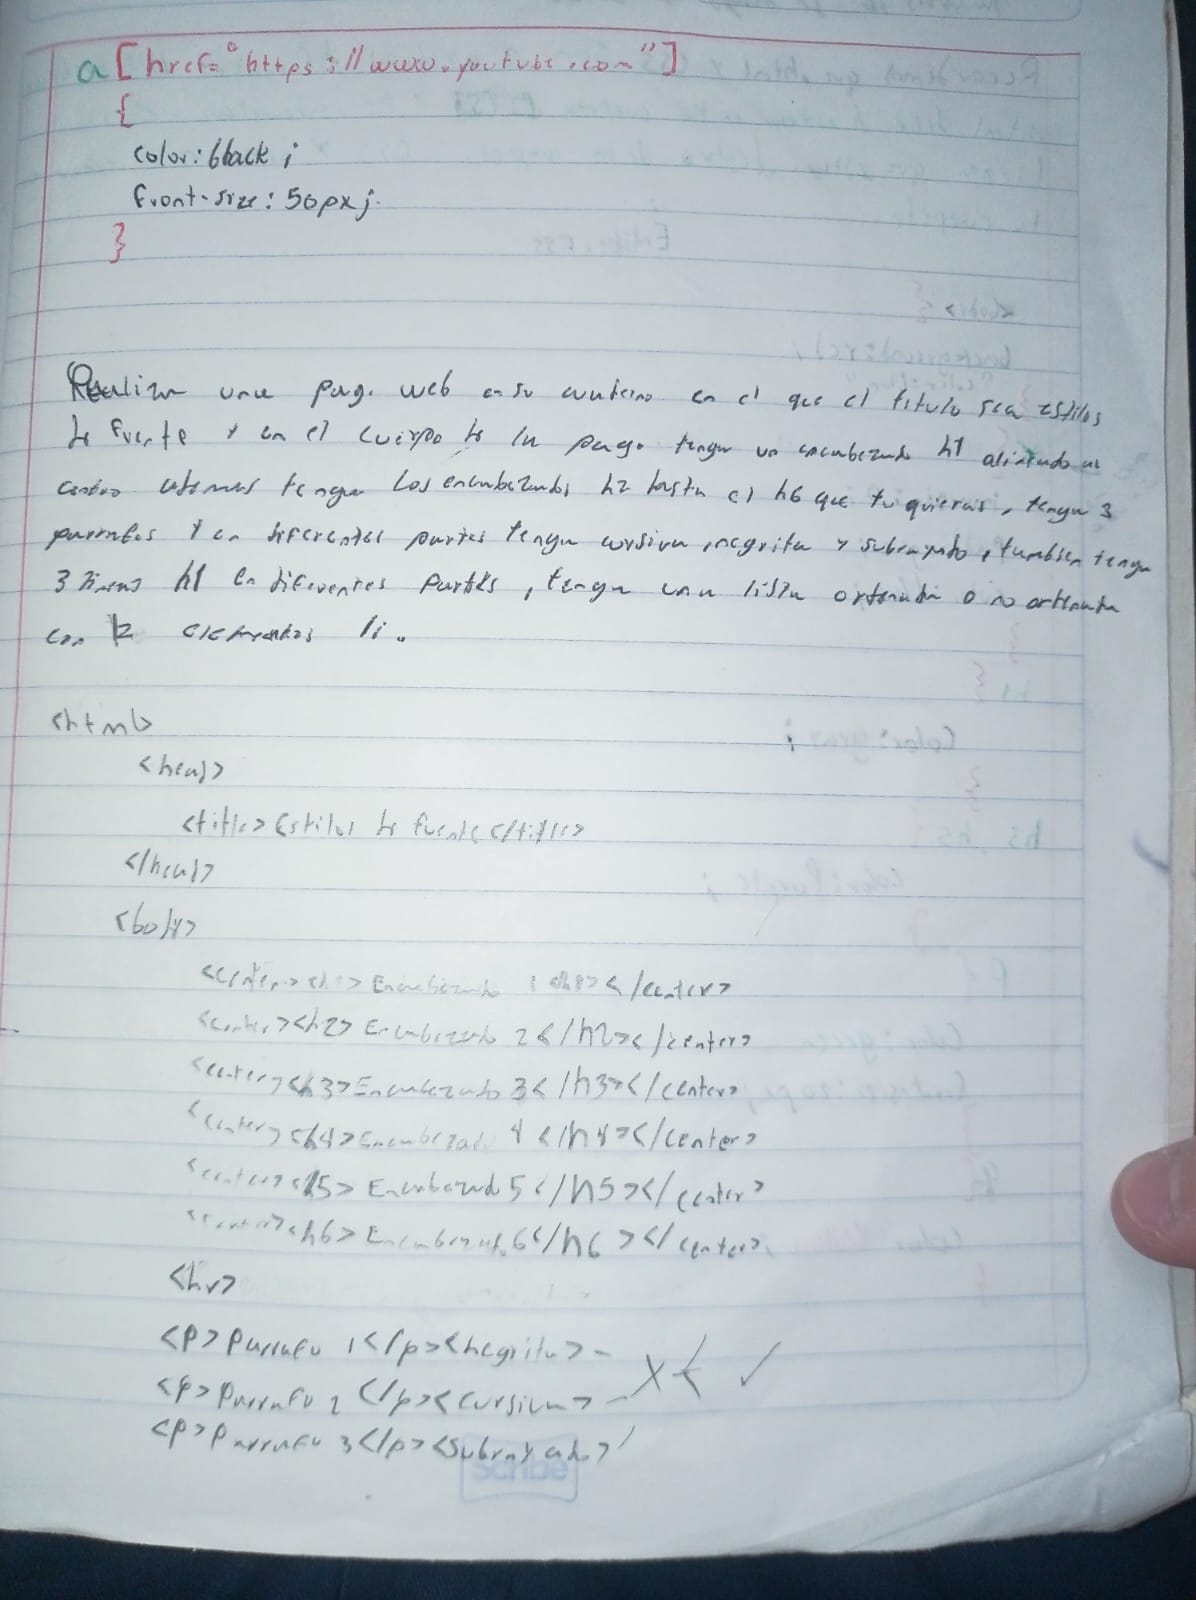 a[href="https://www.youtube.com"]
{
color:black;
front-size:50px;
}
Realizar una pag. web en su cuaderno en el que el titulo sea estilos
de fuente y en el cuerpo de la pag. tenga un encabezado h1 alineado al
centro ademas tenga los encabezados h2 hasta el h6 que tu quieras, tenga 3
parrafos y en diferentes partes tenga cursiva, negrita y subrayado, tambien tenga
3 lineas h1 en diferentes partes, tenga una lista ordenada o no ordenada
con 12 elementos li.
<html>
<head>
<title>Estilos de fuente</title>
</head>
<body>
<center><h1>Encabezado 1<h1></center>
<center><h2>Encabezado 2</h2></center>
<center><h3>Encabezado 3</h3></center>
<center><h4>Encabezado 4</h4></center>
<center><h5>Encabezado 5</h5></center>
<center><h6>Encabezado 6</h6></center>
<hr>
<p>Parrafo 1</p><negrita>
<p>Parrafo 2</p><cursiva>
<p>Parrafo 3</p><subrayado>
Scribe